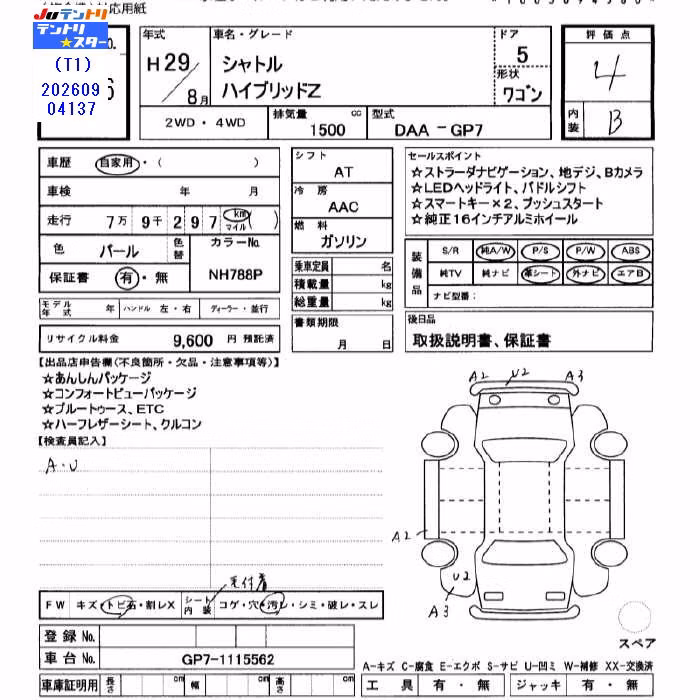 対応用紙
Juテントリ
テントリ★スター
(T1)
202609
04137
年式
H29/8月
車名・グレード
シャトル
ハイブリッドZ
ドア
5
形状
ワゴン
評価点
4
内装
B
2WD・4WD
排気量 1500 cc
型式 DAA-GP7
車歴 自家用・( )
車検 年 月
走行 7万9千297 km マイル ( )
色 パール 色替
カラーNo. NH788P
保証書 有・無
シフト
AT
冷房
AAC
燃料
ガソリン
乗車定員 名
積載量 kg
総重量 kg
書類期限
月 日
セールスポイント
☆ストラーダナビゲーション、地デジ、Bカメラ
☆LEDヘッドライト、パドルシフト
☆スマートキー×2、プッシュスタート
☆純正16インチアルミホイール
装備品
S/R 純A/W P/S P/W ABS
純TV 純ナビ 革シート 外ナビ エアB
ナビ型番：
モデル年式 年 ハンドル 左・右 ディーラー・並行
リサイクル料金 9,600 円 預託済
後日品
取扱説明書、保証書
【出品店申告欄(不良箇所・欠品・注意事項等)】
☆あんしんパッケージ
☆コンフォートビューパッケージ
☆ブルートゥース、ETC
☆ハーフレザーシート、クルコン
【検査員記入】
A・U
A2 U2 A3
A2
U2
A3
毛付着
FW キズ・トビ石・割レX シート内装 コゲ・穴・汚レ・シミ・破レ・スレ
登録No.
車台No. GP7-1115562
スペア
A-キズ C-腐食 E-エクボ S-サビ U-凹ミ W-補修 XX-交換済
車庫証明用 長さ cm 幅 cm 高さ cm
工具 有・無 ジャッキ 有・無